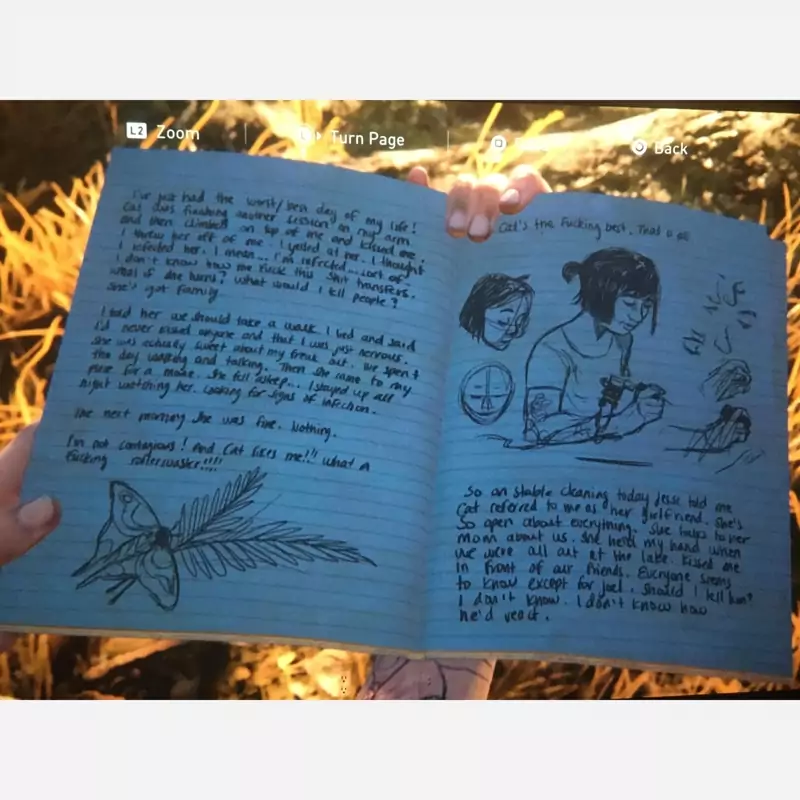 L2 Zoom
Turn Page
Back
I've just had the worst/best day of my life!
Cat was finishing another session on my arm
and then climbed on top of me and kissed me.
I threw her off of me. I yelled at her. I thought
I infected her. I mean... I'm infected... sort of.
I don't know how the fuck this shit transfers.
What if she turns? What would I tell people?
She's got family.
I told her we should take a walk. I lied and said
I'd never kissed anyone and that I was just nervous.
She was actually sweet about my freak out. We spent
the day walking and talking. Then she came to my
place for a movie. She fell asleep... I stayed up all
night watching her. Looking for signs of infection.
The next morning she was fine. Nothing.
I'm not contagious! And Cat likes me!!! What a
fucking rollercoaster!!!!
Cat's the fucking best. That is all
So on stable cleaning today Jesse told me
Cat referred to me as her girlfriend. She's
so open about everything. She talks to her
mom about us. She held my hand when
we were all out at the lake. Kissed me
in front of our friends. Everyone seems
to know except for Joel. Should I tell him?
I don't know. I don't know how
he'd react.